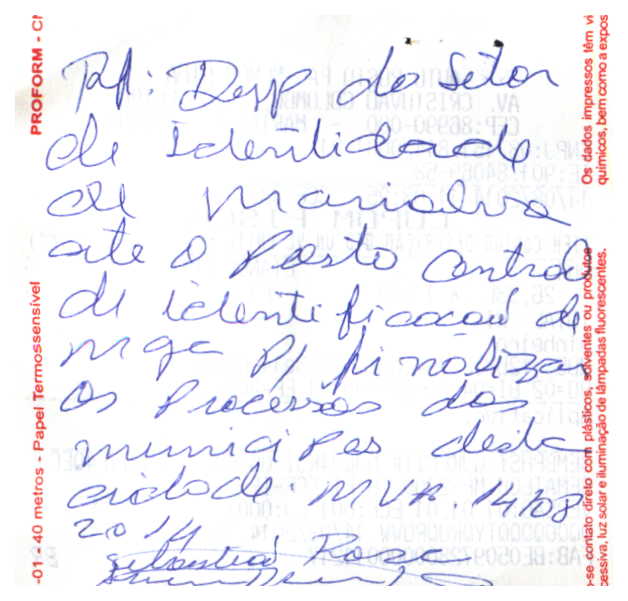 Rf: Desp do Setor
de Identidade
de Marialva
ate o Posto Central
de identificacaõ de
mga P/ finalizar
os Processos dos
municipes desta
cidade. MVA. 14/08
2014
Sebastiaõ Rosa
PROFORM - C
-01 - 40 metros - Papel Termossensível
Os dados impressos têm vi
químicos, bem como a expos
-se contato direto com plásticos, solventes ou produtos
cessiva, luz solar e iluminação de lâmpadas fluorescentes.